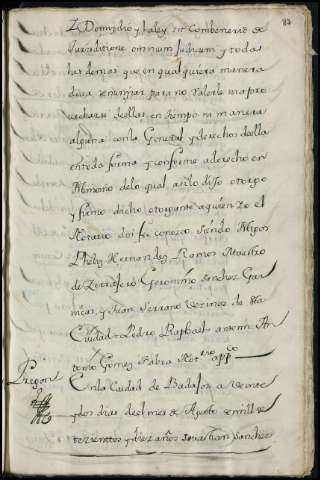 83
Domicilio y la ley sit Combenerit de
Jurisditione omnium Judicum y todas
las demas que en qualquiera manera
deva renunçiar para no valerse ni apro
vecharse dellas en tiempo ni manera
alguna con la General y derechos della
en toda forma y conforme a derecho en
testimonio de lo qual assi lo dijo otorgo
y firmo dicho otorgante a quien yo el
Notario doi fee conozco siendo testigos
Phelix Hernandez Ramos Maestro
de Zerrajero Geronimo sanchez Gar
y Juan Serrano Vezinos de sta
Ciudad = Pedro Raphael = ante mi An
tonio Gomez Fabra Not rio app co
Pregon
En la Ciudad de Badajoz a veinte
y dos dias del mes de Agosto de mill se
tezientos y diez años sevastian sanchez